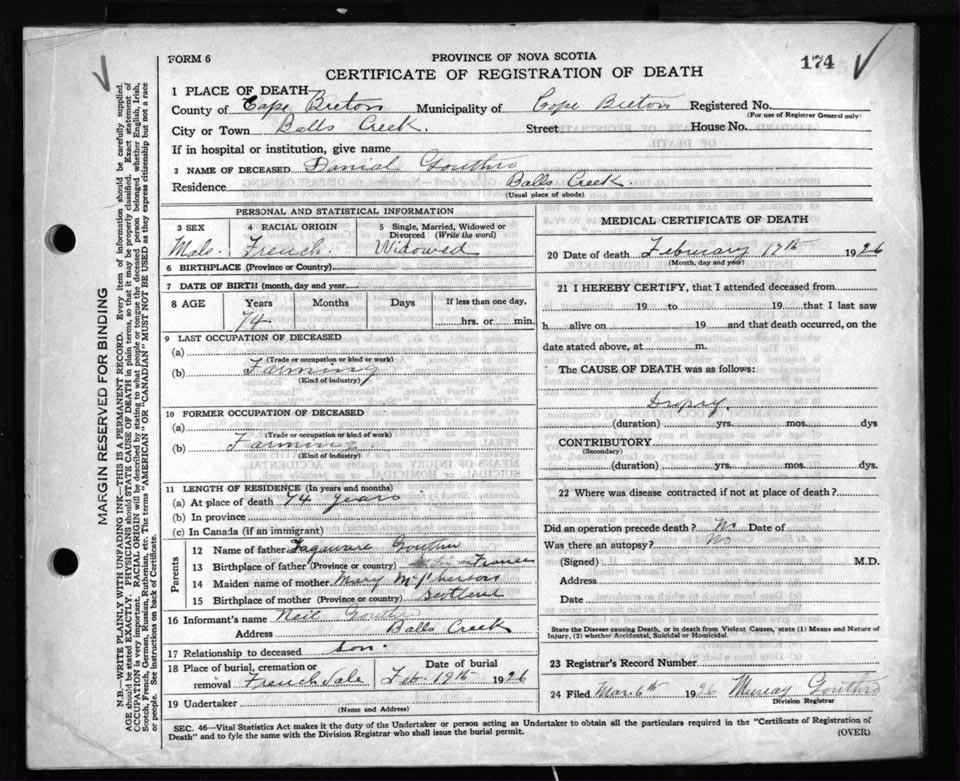 FORM 6
PROVINCE OF NOVA SCOTIA
174
CERTIFICATE OF REGISTRATION OF DEATH
1 PLACE OF DEATH—
County of Cape Breton Municipality of Cope Breton Registered No.
(For use of Registrar General only)
City or Town Balls Creek. Street House No.
If in hospital or institution, give name
2 NAME OF DECEASED Danial Gouthro
Residence Balls Creek
(Usual place of abode)
PERSONAL AND STATISTICAL INFORMATION
3 SEX 4 RACIAL ORIGIN 5 Single, Married, Widowed or Divorced (Write the word)
Male. French. Widowed
6 BIRTHPLACE (Province or Country)
7 DATE OF BIRTH (month, day and year)
8 AGE Years Months Days If less than one day,
74 hrs. or min.
9 LAST OCCUPATION OF DECEASED
(a)
(Trade or occupation or kind or work)
(b) Farming
(Kind of industry)
10 FORMER OCCUPATION OF DECEASED
(a)
(Trade or occupation or kind of work)
(b) Farming
(Kind of industry)
11 LENGTH OF RESIDENCE (In years and months)
(a) At place of death 74 years
(b) In province
(c) In Canada (if an immigrant)
Parents
12 Name of father Gouthro
13 Birthplace of father (Province or country) France
14 Maiden name of mother Mary McPherson
15 Birthplace of mother (Province or country) Scotland
16 Informant's name Neil Gouthro
Address Balls Creek
17 Relationship to deceased son.
18 Place of burial, cremation or removal French Vale Date of burial Feb. 19th 1926
19 Undertaker
(Name and Address)
MEDICAL CERTIFICATE OF DEATH
20 Date of death February 17th 1926
(Month, day and year)
21 I HEREBY CERTIFY, that I attended deceased from
19 to 19 that I last saw
h alive on 19 and that death occurred, on the
date stated above, at m.
The CAUSE OF DEATH was as follows:
Dropsy.
(duration) yrs. mos. dys
CONTRIBUTORY
(Secondary)
(duration) yrs. mos. dys.
22 Where was disease contracted if not at place of death?
Did an operation precede death? No Date of
Was there an autopsy? No
(Signed) M.D.
Address
Date
State the Disease causing Death, or in death from Violent Causes, state (1) Means and Nature of
Injury, (2) whether Accidental, Suicidal or Homicidal.
23 Registrar's Record Number
24 Filed Mar. 6th 1926 Murray Gouthro
Division Registrar
SEC. 46—Vital Statistics Act makes it the duty of the Undertaker or person acting as Undertaker to obtain all the particulars required in the "Certificate of Registration of
Death" and to fyle the same with the Division Registrar who shall issue the burial permit.
(OVER)
MARGIN RESERVED FOR BINDING
N.B.—WRITE PLAINLY WITH UNFADING INK—THIS IS A PERMANENT RECORD. Every item of information should be carefully supplied.
AGE should be stated EXACTLY. PHYSICIANS should STATE CAUSE OF DEATH in plain terms, so that it may be properly classified. Exact statement of
OCCUPATION is very important. RACIAL ORIGIN will be described by stating to what people or tongue the deceased person belonged whether English, Irish,
Scotch, French, German, Russian, Ruthenian, etc. The terms "AMERICAN" OR "CANADIAN" MUST NOT BE USED as they express citizenship but not a race
or people. See instructions on back of Certificate.